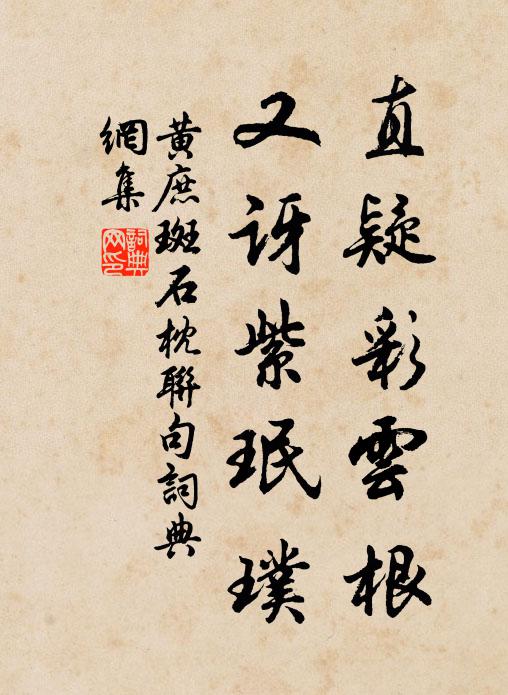 直疑彩雲根
又訝紫珉璞
黃庶斑石枕聯句詞典
網集
詞典網印